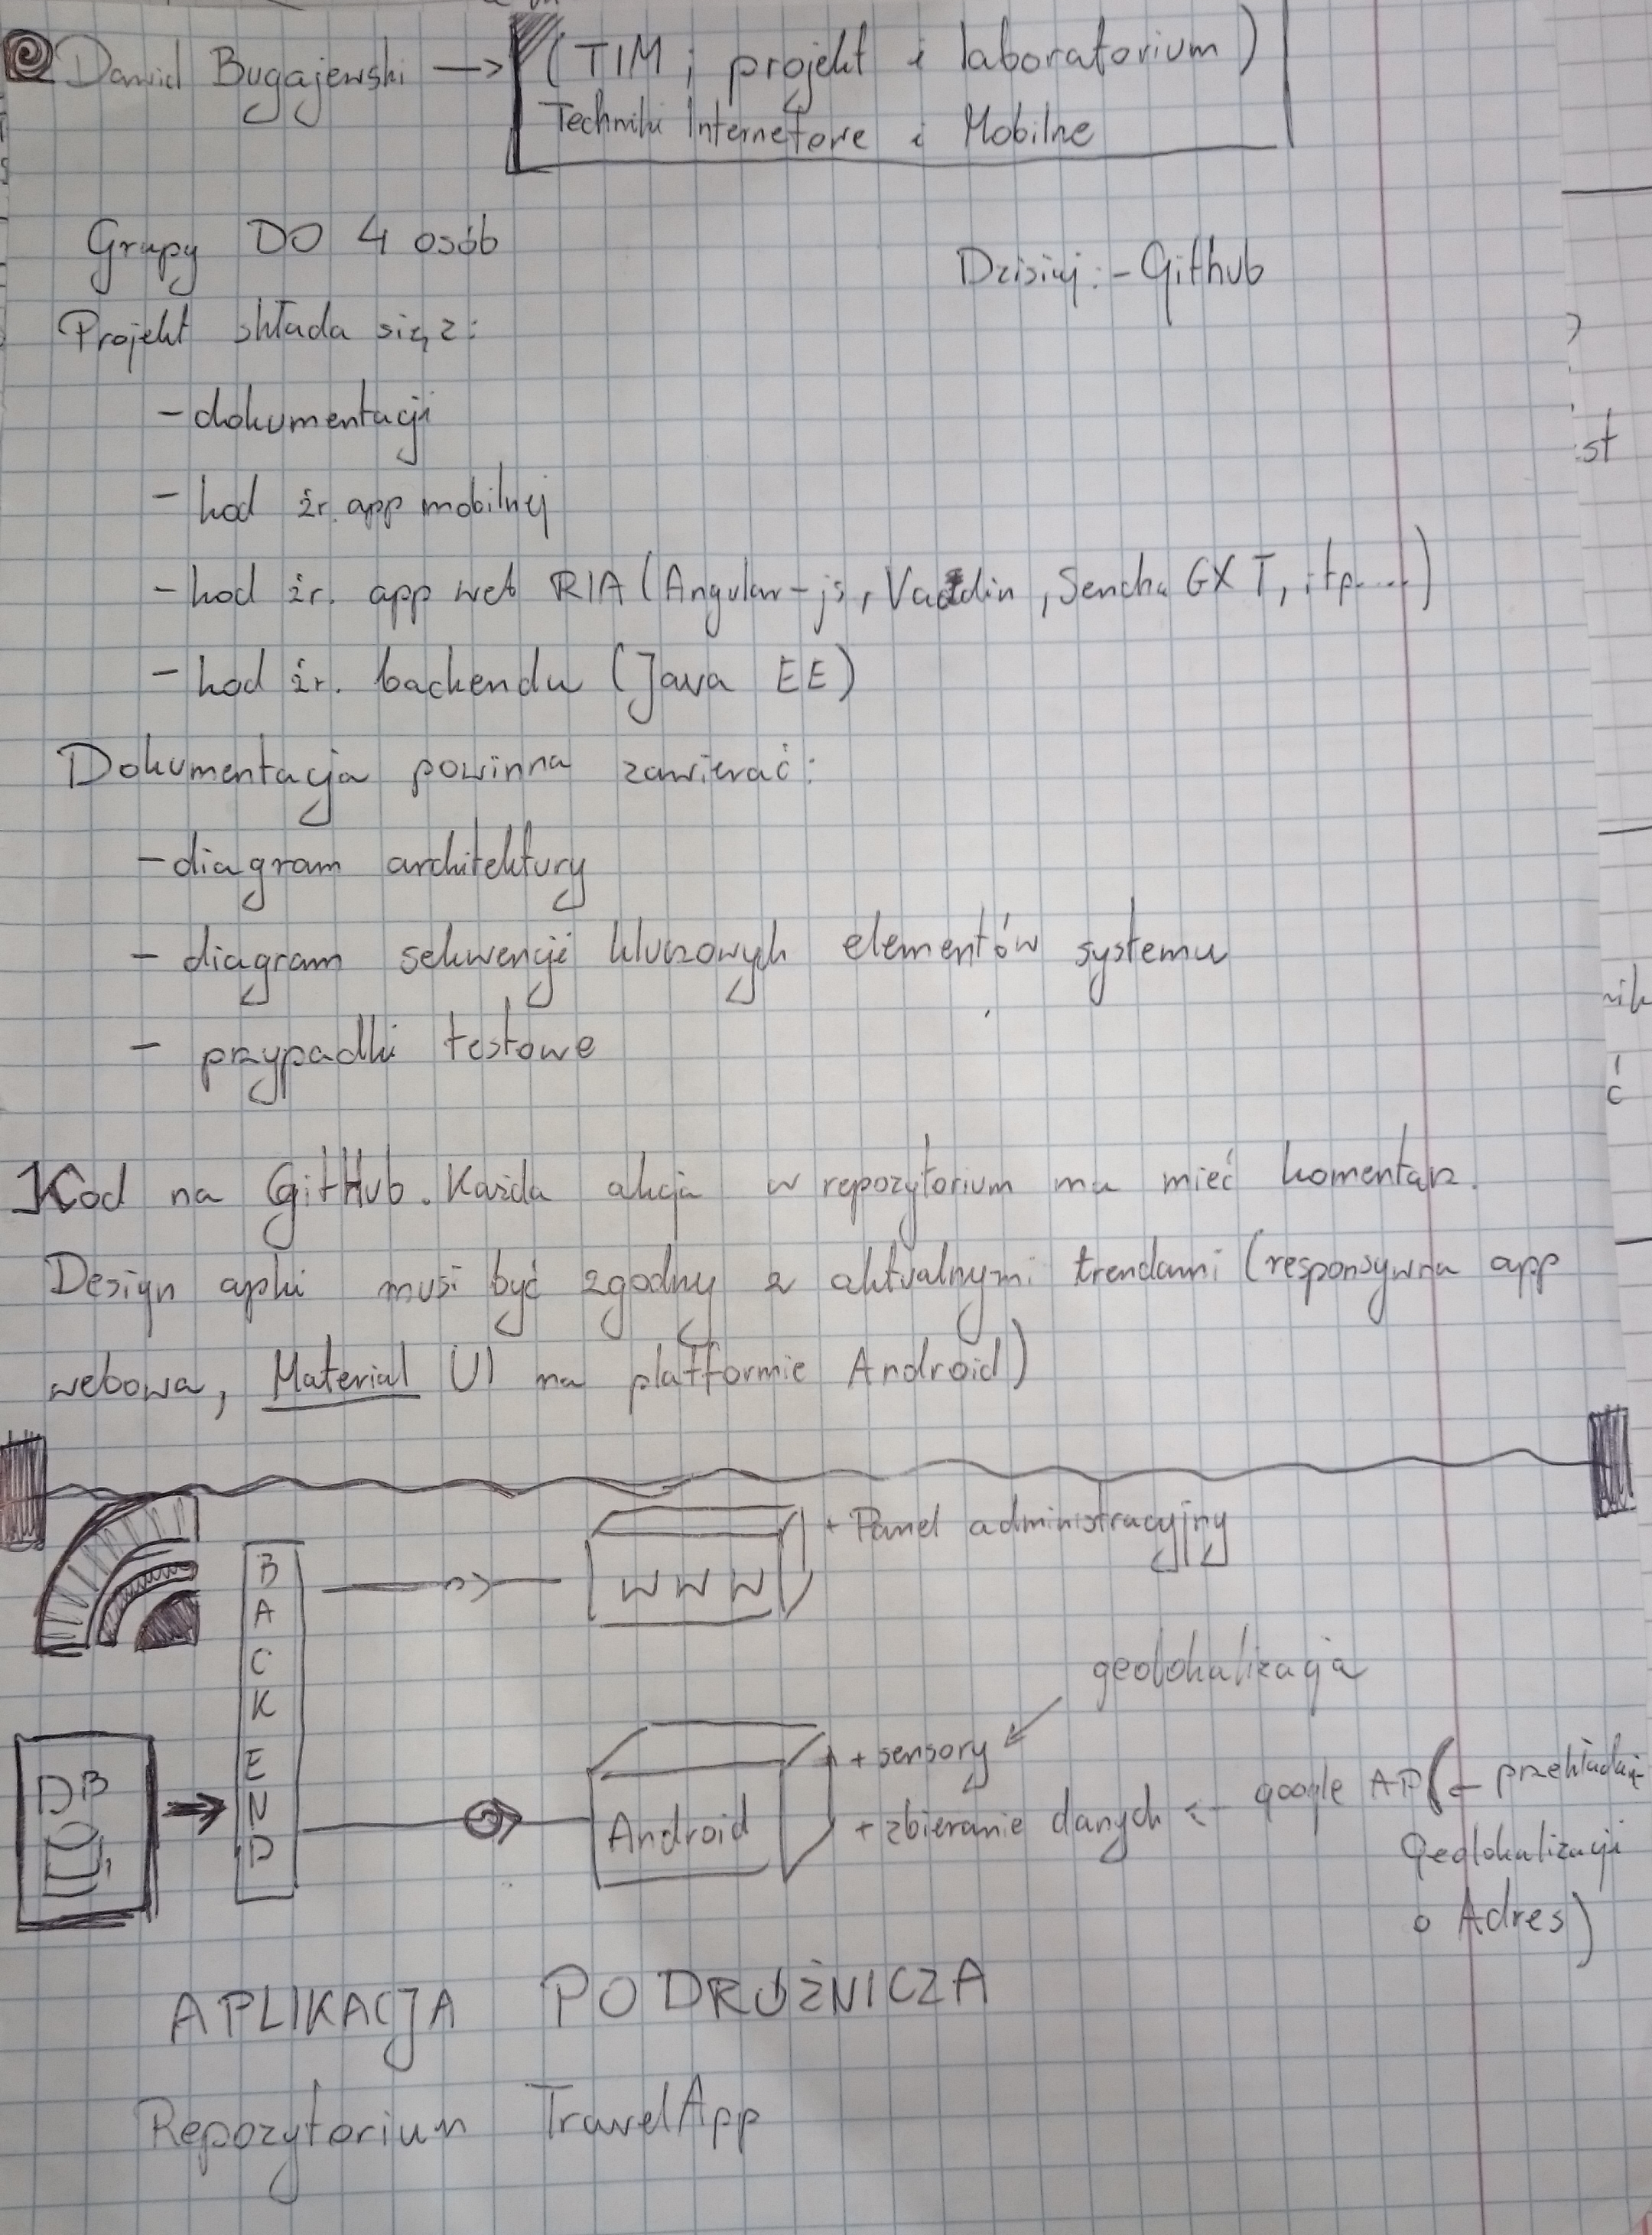 Dawid Bugajewski → (TIM; projekt i laboratorium)
Techniki Internetowe i Mobilne
Grupy DO 4 osób
Dzisiaj: - Github
Projekt składa się z:
- dokumentacji
- kod źr. app mobilnej
- kod źr. app web RIA (Angular-js, Vaadin, Sencha GXT, itp....)
- kod źr. backendu (Java EE)
Dokumentacja powinna zawierać:
- diagram architektury
- diagram sekwencji kluczowych elementów systemu
- przypadki testowe
Kod na GitHub. Każda akcja w repozytorium ma mieć komentarz.
Design apki musi być zgodny z aktualnymi trendami (responsywna app
webowa, Material UI na platformie Android)
BACKEND
WWW
+ Panel administracyjny
geolokalizacja
DB
Android
+ sensory
+ zbieranie danych ← google API (- przekładanie
Geolokalizacji
o Adres)
APLIKACJA PODRÓŻNICZA
Repozytorium TravelApp